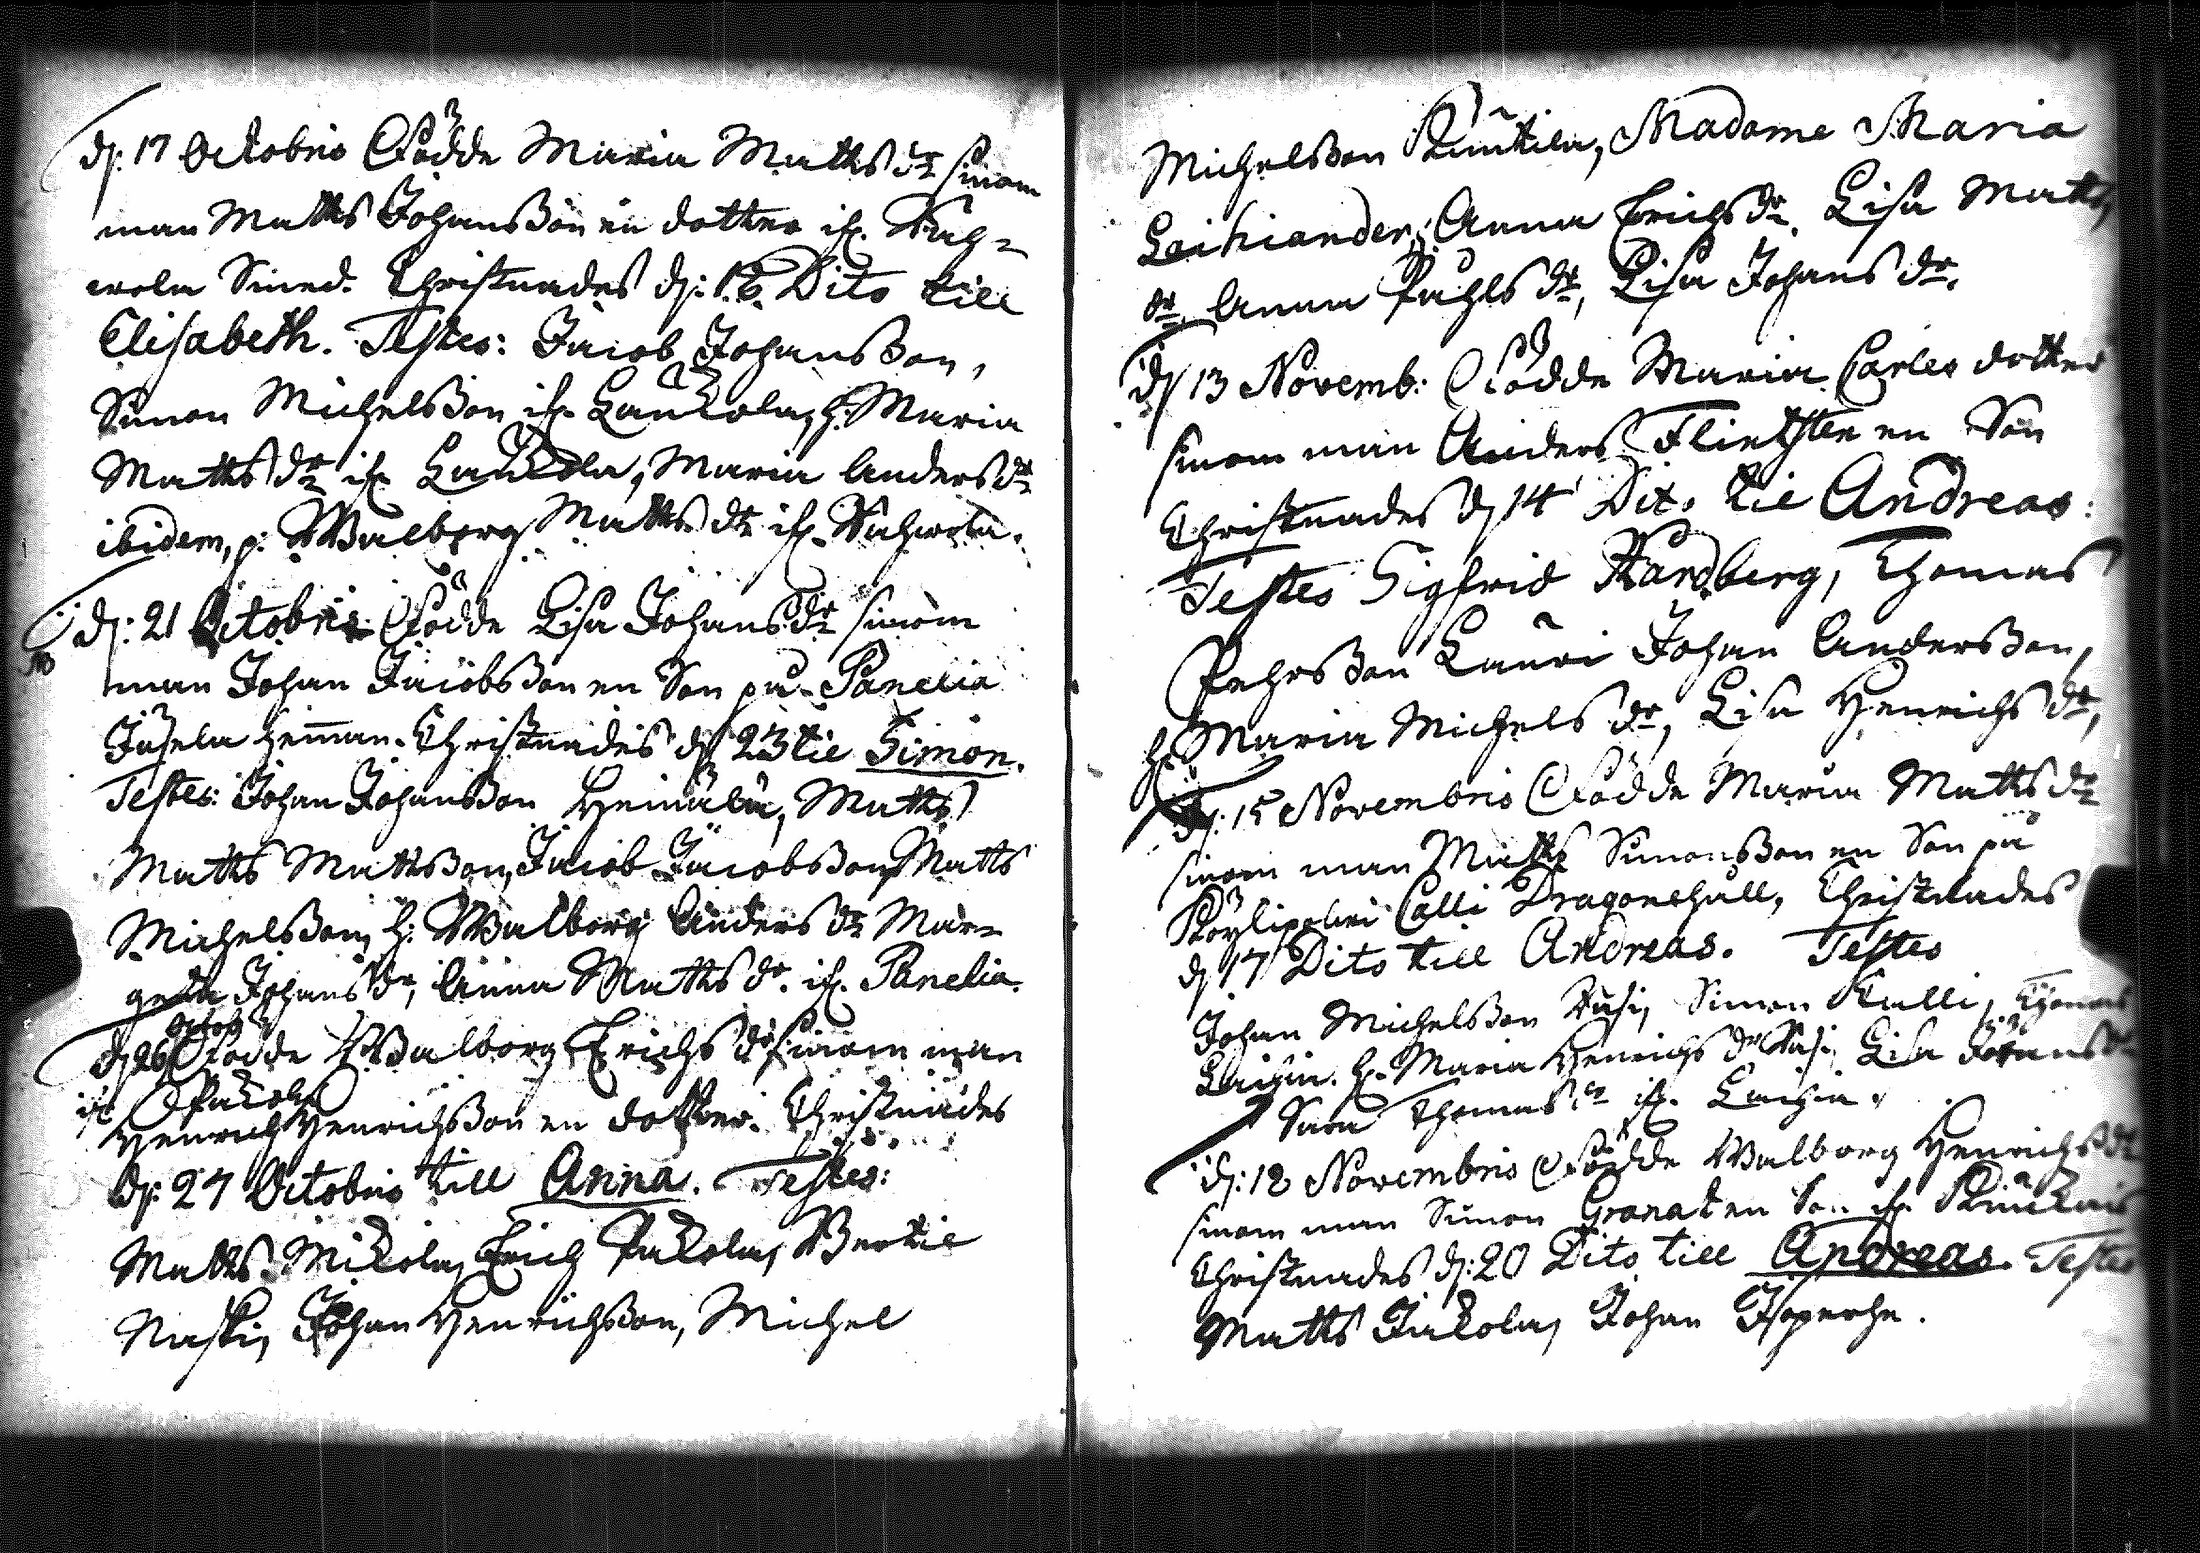 d: 17 Octobris Födde Maria Matts dr sinom
man Matts Johansson en dotter if.
Christnades d: 18 Dito till
Elisabeth. Testes: Jacob Johansson,
Simon Michelsson if. Laukola, h. Maria
Matts dr if. Laukola, Maria Anders dr
ibidem, p: Walborg Matts dr if.
d: 21 Octobris Födde Lisa Johans dr sinom
man Johan Jacobsson en Son på Panelia
heman. Christnades d 23 til Simon.
Testes: Johan Johansson Heinälä, Matts
Matts Mattsson, Jacob Jacobsson, Matts
Michelsson, h: Walborg Anders dr Mar=
geta Johans dr, Anna Matts dr. if. Panelia.
d 26 Octob Födde Walborg Erichs dr sinom man
if Pukola
Henrich Henrichsson en dotter. Christnades
d: 27 Octobris till Anna. Testes:
Matts Mikola, Erich Pukola, Bertil
Naski, Johan Henrichsson, Michel
Michelsson Knutila, Madame Maria
Leitiander, Anna Erichs dr. Lisa Matts
dr. Anna Påhls dr, Lisa Johans dr.
d 13 Novemb: Födde Maria Carles dotter
sinom man Anders Flinthen en Son
Christnades d 14 Dito til Andreas:
Testes Sigfrid Hardberg, Thomas
Pehrsson Lauri Johan Andersson,
h. Maria Michels dr, Lisa Henrichs dr,
d: 15 Novembris Födde Maria Matts dr
sinom man Matts Simonsson en Son på
Köylipolvi Calli Dragonehåll, Christnades
d 17 Dito till Andreas. Testes
Johan Michelsson Simon Kalli, Thomas
h. Maria Henrichs dr Lisa Johans dr
Sara Thomas dr if.
d: 18 Novembris Födde Walborg Henrichs dr
sinom man Simon Granat en Son if.
Christnades d: 20 Dito till Andreas. Testes
Matts Jakola, Johan